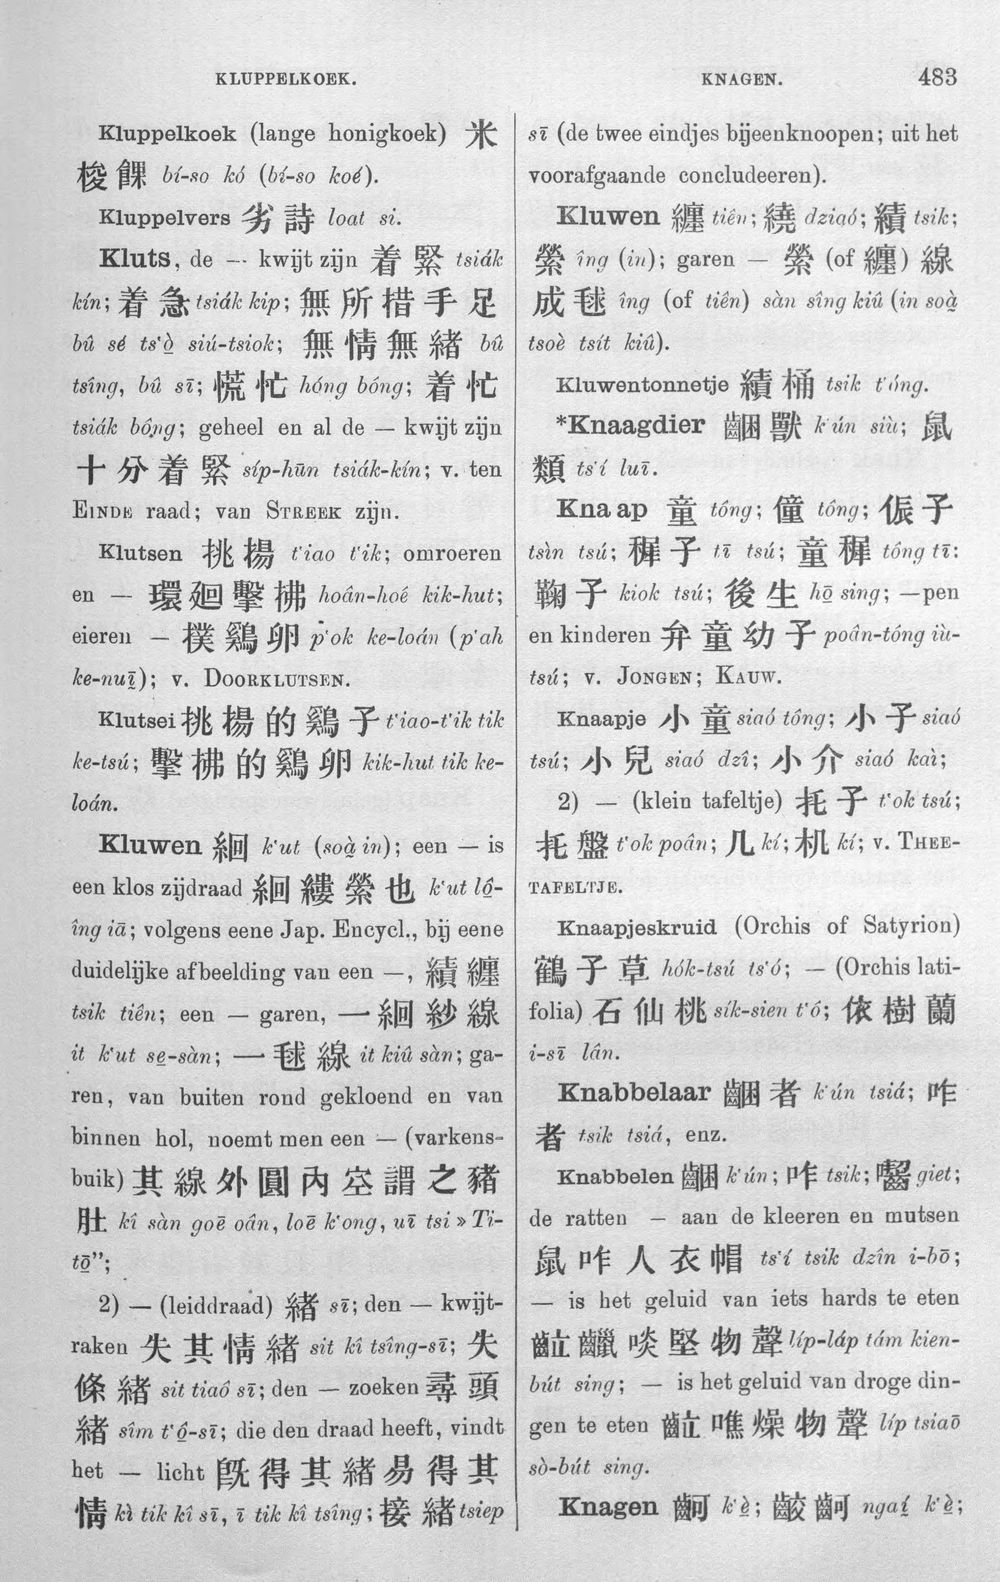 KLUPPELKOEK.
KNAGEN.
483
Kluppelkoek (lange honigkoek) 米
梭餜 bí-so kó (bí-so koé).
Kluppelvers 劣詩 loat si.
Kluts, de — kwijt zijn 着緊 tsiák
kín; 着急 tsiák kip; 無所措手足
bû sé ts'ò̤ siú-tsiok; 無情無緒 bû
tsîng, bû sī; 慌忙 hóng bóng; 着忙
tsiák bông; geheel en al de — kwijt zijn
十分着緊 síp-hūn tsiák-kín; v. ten
EINDE raad; van STREEK zijn.
Klutsen 挑揚 t'iao t'ik; omroeren
en — 環廻擊拂 hoân-hoê kik-hut;
eieren — 撲鷄卵 p'ok ke-loán (p'ah
ke-nuī); v. DOORKLUTSEN.
Klutsei 挑揚的鷄子 t'iao-t'ik tik
ke-tsú; 擊拂的鷄卵 kik-hut tik ke-
loán.
Kluwen 綑 k'ut (soà in); een — is
een klos zijdraad 綑縷縈也 k'ut lô-
îng iā; volgens eene Jap. Encycl., bij eene
duidelijke afbeelding van een —, 績纏
tsik tiên; een — garen, 一綑紗線
it k'ut se-sàn; 一毬線 it kiû sàn; ga-
ren, van buiten rond gekloend en van
binnen hol, noemt men een — (varkens-
buik) 其線外圓內空謂之豬
肚 kî sàn goē oân, loē k'ong, uī tsi » Ti-
tō̤";
2) — (leiddraad) 緒 sī; den — kwijt-
raken 失其情緒 sit kî tsîng-sī; 失
條緒 sit tiaô sī; den — zoeken 尋頭
緒 sîm t'ô̤-sī; die den draad heeft, vindt
het — licht 既得其緒易得其
情 kì tik kî sī, ī tik kî tsîng; 接緒 tsiep
sī (de twee eindjes bijeenknoopen; uit het
voorafgaande concludeeren).
Kluwen 纏 tiên; 繞 dziaó; 績 tsik;
縈 îng (in); garen — 縈 (of 纏) 線
成毬 îng (of tiên) sàn sîng kiû (in soà
tsoè tsít kiû).
Kluwentonnetje 績桶 tsik t'óng.
*Knaagdier 齫獸 k'ún siù; 鼠
類 ts'í luī.
Knaap 童 tông; 僮 tông; 侲子
tsìn tsú; 穉子 tī tsú; 童穉 tông tī:
鞠子 kiok tsú; 後生 hō̤ sing; —pen
en kinderen 弁童幼子 poân-tông iù-
tsú; v. JONGEN; KAUW.
Knaapje 小童 siaó tông; 小子 siaó
tsú; 小兒 siaó dzî; 小介 siaó kaì;
2) — (klein tafeltje) 托子 t'ok tsú;
托盤 t'ok poân; 几 kí; 机 kí; v. THEE-
TAFELTJE.
Knaapjeskruid (Orchis of Satyrion)
鶴子草 hók-tsú ts'ó; — (Orchis lati-
folia) 石仙桃 sík-sien t'ó; 依樹蘭
i-sī lân.
Knabbelaar 齫者 k'ún tsiá; 咋
者 tsik tsiá, enz.
Knabbelen 齫 k'ún; 咋 tsik; 囓 giet;
de ratten — aan de kleeren en mutsen
鼠咋人衣帽 ts'í tsik dzîn i-bō;
— is het geluid van iets hards te eten
齷齺啖堅物聲 líp-láp tám kien-
bút sing; — is het geluid van droge din-
gen te eten 噍燥物聲 líp tsiaō
sò-bút sing.
Knagen 齖 k'è̤; 齩齖 ngaí k'è̤;